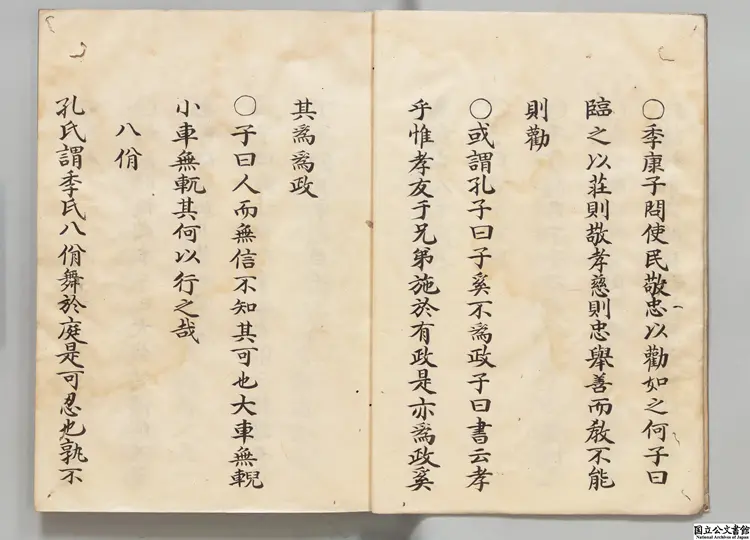 〇季康子問使民敬忠以勸如之何子曰
臨之以莊則敬孝慈則忠舉善而教不能
則勸
〇或謂孔子曰子奚不為政子曰書云孝
乎惟孝友于兄弟施於有政是亦為政奚
其為為政
〇子曰人而無信不知其可也大車無輗
小車無軏其何以行之哉
八佾
孔氏謂季氏八佾舞於庭是可忍也孰不
国立公文書館
National Archives of Japan